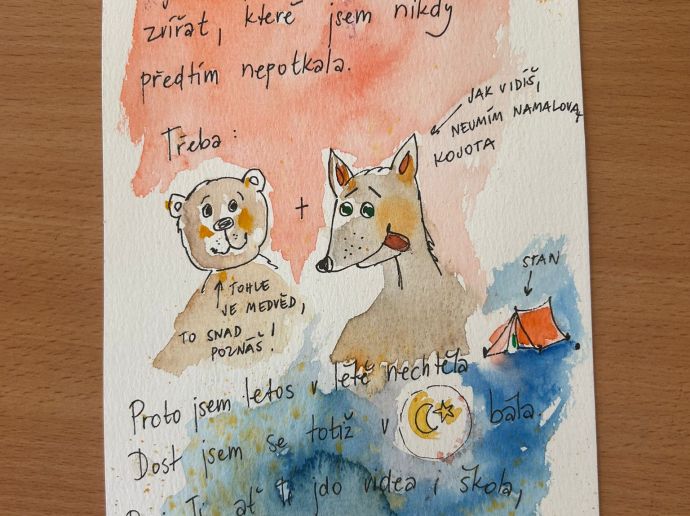 zvířat, které jsem nikdy
předtím nepotkala.
JAK VIDÍŠ,
NEUMÍM NAMALOVAT
KOJOTA
Třeba:
+
STAN
TOHLE
JE MEDVĚD,
TO SNAD
POZNÁŠ!
Proto jsem letos v létě nechtěla
Dost jsem se totiž v bála.
ať Ti jdo videa i škola,